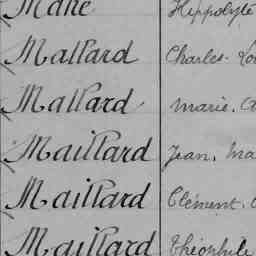 Mahé Hippolyte
Mallard Charles
Mallard Marie
Maillard Jean, Ma
Maillard Clément
Maillard Théophile